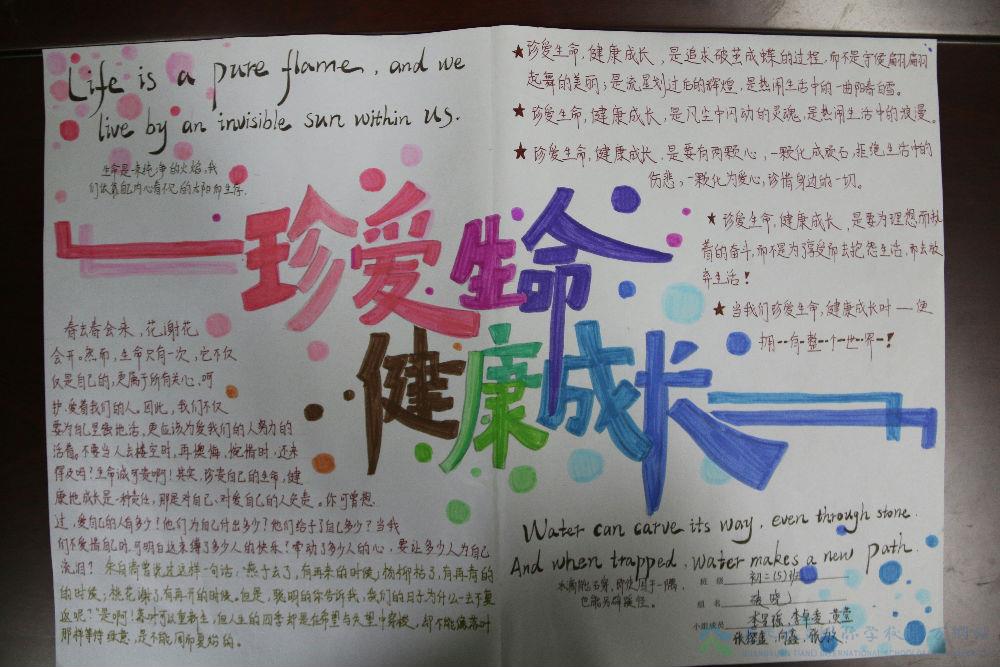 Life is a pure flame, and we
live by an invisible sun within us.
生命是一束纯净的火焰,我
们依靠自己内心看不见的太阳而生存.
珍爱生命
健康成长
春去春会来,花谢花
会开。然而,生命只有一次,它不仅
仅是自己的,更属于所有关心、呵
护、爱着我们的人。因此,我们不仅
要为自己坚强地活,更应该为爱我们的人努力的
活着。不要当人去楼空时,再懊悔、惋惜时,还来
得及吗?生命诚可贵啊!其实,珍爱自己的生命,健
康地成长是一种责任,那是对自己、对爱自己的人负责。你可曾想
过,爱自己的人有多少?他们为自己付出多少?他们给予了自己多少?当我
们不爱惜自己时,可明白这来缚了多少人的快乐?带动了多少人的心,要让多少人为自己
流泪? 朱自清曾说过这样一句话:"燕子去了,有再来的时候;杨柳枯了,有再青的
的时候;桃花谢了,有再开的时候。但是,聪明的你告诉我,我们的日子为什么一去不复
返呢?"是啊!落叶可以重新生,但人生的四季却是在希望与失望中穿梭,却不能像落叶
那样等待
是不能周而复始的。
★珍爱生命,健康成长,是追求破茧成蝶的过程,而不是守候翩翩
起舞的美丽;是流星划过后的辉煌,是热闹生活中的一曲阳春白雪。
★珍爱生命,健康成长,是风尘中闪动的灵魂,是热闹生活中的浪漫。
★珍爱生命,健康成长,是要有两颗心,一颗化成顽石,拒绝生活中的
伤悲,一颗化为爱心,珍惜身边的一切。
★珍爱生命,健康成长,是要为理想而执
着的奋斗,而不是为了享受而去抱怨生活,而去放
弃生活!
★当我们珍爱生命,健康成长时——便
拥有一整个世界!
Water can carve its way, even through stone.
And when trapped, water makes a new path.
水滴能石穿,即使困于一隅,
也能另辟蹊径。
班 级 初二(5)班
组 名 破晓
小组成员